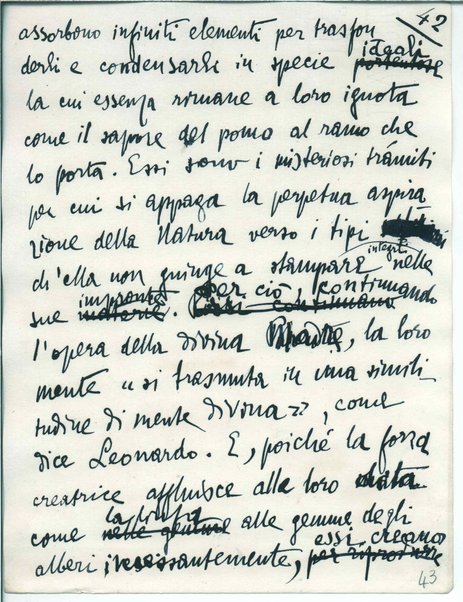 42
assorbono infiniti elementi per trasfon
derli e condensarli in specie ideali
la cui essenza rimane a loro ignota
come il sapore del pomo al ramo che
lo porta. Essi sono i misteriosi trámiti
per cui si appaga la perpetua aspira
zione della Natura verso i tipi
ch'ella non giunge a stampare integri nelle
sue impronte. Per ciò, continuando
l'opera della divina Madre, la loro
mente "si trasmuta in una simili
tudine di mente divina", come
dice Leonardo. E, poiché la forza
creatrice affluisce alle loro
come la linfa alle gemme degli
alberi incessantemente, essi creano
43